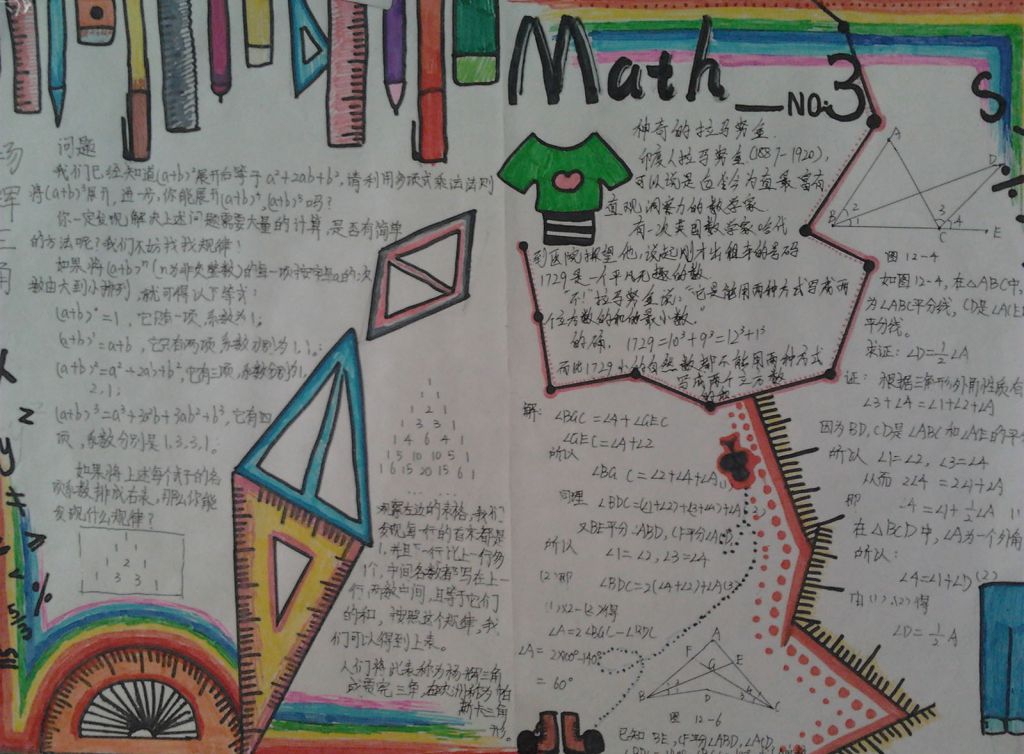 杨辉三角
问题
我们已经知道(a+b)²展开后等于a²+2ab+b²,请利用多项式乘法法则
将(a+b)³展开,进一步,你能展开(a+b)⁴,(a+b)⁵吗?
你一定发现解决上述问题需要大量的计算,是否有简单
的方法呢?我们不妨找找规律!
如果将(a+b)ⁿ(n为非负整数)的每一项按字母a的次
数由大到小排列,就可得以下等式:
(a+b)⁰=1,它只有一项,系数为1;
(a+b)¹=a+b,它只有两项,系数分别为1,1;
(a+b)²=a²+2ab+b²,它有三项,系数分别为1,
2,1;
(a+b)³=a³+3a²b+3ab²+b³,它有四
项,系数分别是1,3,3,1。
如果将上述每个式子的各
项系数排成右表,那么你能
发现什么规律?
1
1 1
1 2 1
1 3 3 1
1
1 2 1
1 3 3 1
1 4 6 4 1
1 5 10 10 5 1
1 6 15 20 15 6 1
观察左边的表格,我们
发现每一行的首末都是
1,并且下一行比上一行多
1个,中间各数都写在上一
行两数中间,且等于它们
的和,按照这个规律,我
们可以得到上表。
人们将此表称为杨辉三角
或贾宪三角,在欧洲称为帕
斯卡三角
形。
Math NO:3
神奇的拉马努金
印度人拉马努金(1887-1920),
可以说是迄今为止最富有
直观洞察力的数学家
有一次英国数学家哈代
到医院探望他,说起刚才出租车的号码
1729是一个平凡无趣的数
"不!"拉马努金说:"它是能用两种方式写成两
个立方数的和的最小数。"
的确,1729=10³+9³=12³+1³
而比1729小的自然数都不能用两种方式
写成两个立方数
的和
解:∠BGC=∠4+∠GEC
∠GEC=∠A+∠2
所以
∠BGC=∠2+∠4+∠A(1)
同理 ∠BDC=(∠1+∠2)+(∠3+∠4)+∠A
又BE平分∠ABD,CF平分∠ACD
所以 ∠1=∠2,∠3=∠4
(2)即 ∠BDC=2(∠4+∠2)+∠A(3)
(1)×2-(3)得
∠A=2∠BGC-∠BDC
∠A=2×100°-140°
=60°
A
F E
G
B D C
图12-6
已知BE,CF平分∠ABD,∠ACD,
A
D
B 2 1
3 4
C E
图12-4
如图12-4,在△ABC中,
为∠ABC平分线,CD是∠ACE
平分线。
求证:∠D=½∠A
证:根据三角形外角性质有
∠3+∠4=∠1+∠2+∠A
因为BD,CD是∠ABC和∠ACE的平
所以 ∠1=∠2,∠3=∠4
从而 2∠4=2∠1+∠A
即 ∠4=∠1+½∠A (1)
在△BCD中,∠4为一个外角
所以:
∠4=∠1+∠D(2)
由(1)、(2)得
∠D=½∠A